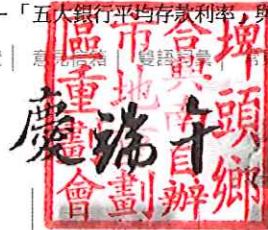 -「五大銀行平均存款利率」與
意見信箱 | 雙語詞彙
埤頭鄉
合興南自辦
市地重劃
區重劃會
慶端午